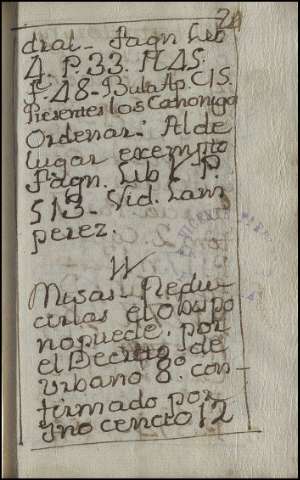 24
dral - Fagn. Lib
4. P. 33. N. 45.
P. 48 - Bula Ap. C. 15.
Presentes los Canonigo
Ordenar: Al de
lugar exempto
Fagn. Lib P.
513 - Vid. Lam
perez.
M
Misas - Redu-
cirlas el Obispo
no puede. por
el Decreto de
Urbano 8º. con-
firmado por
Ynocencio 12